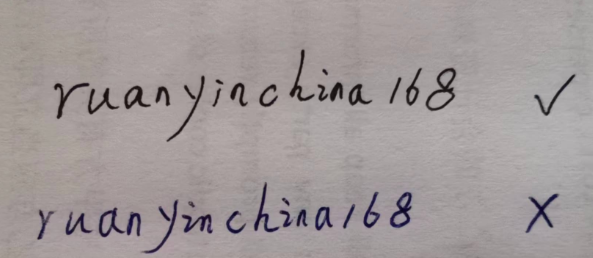 ruanyinchina168 ✓
ruanyinchina168 ×